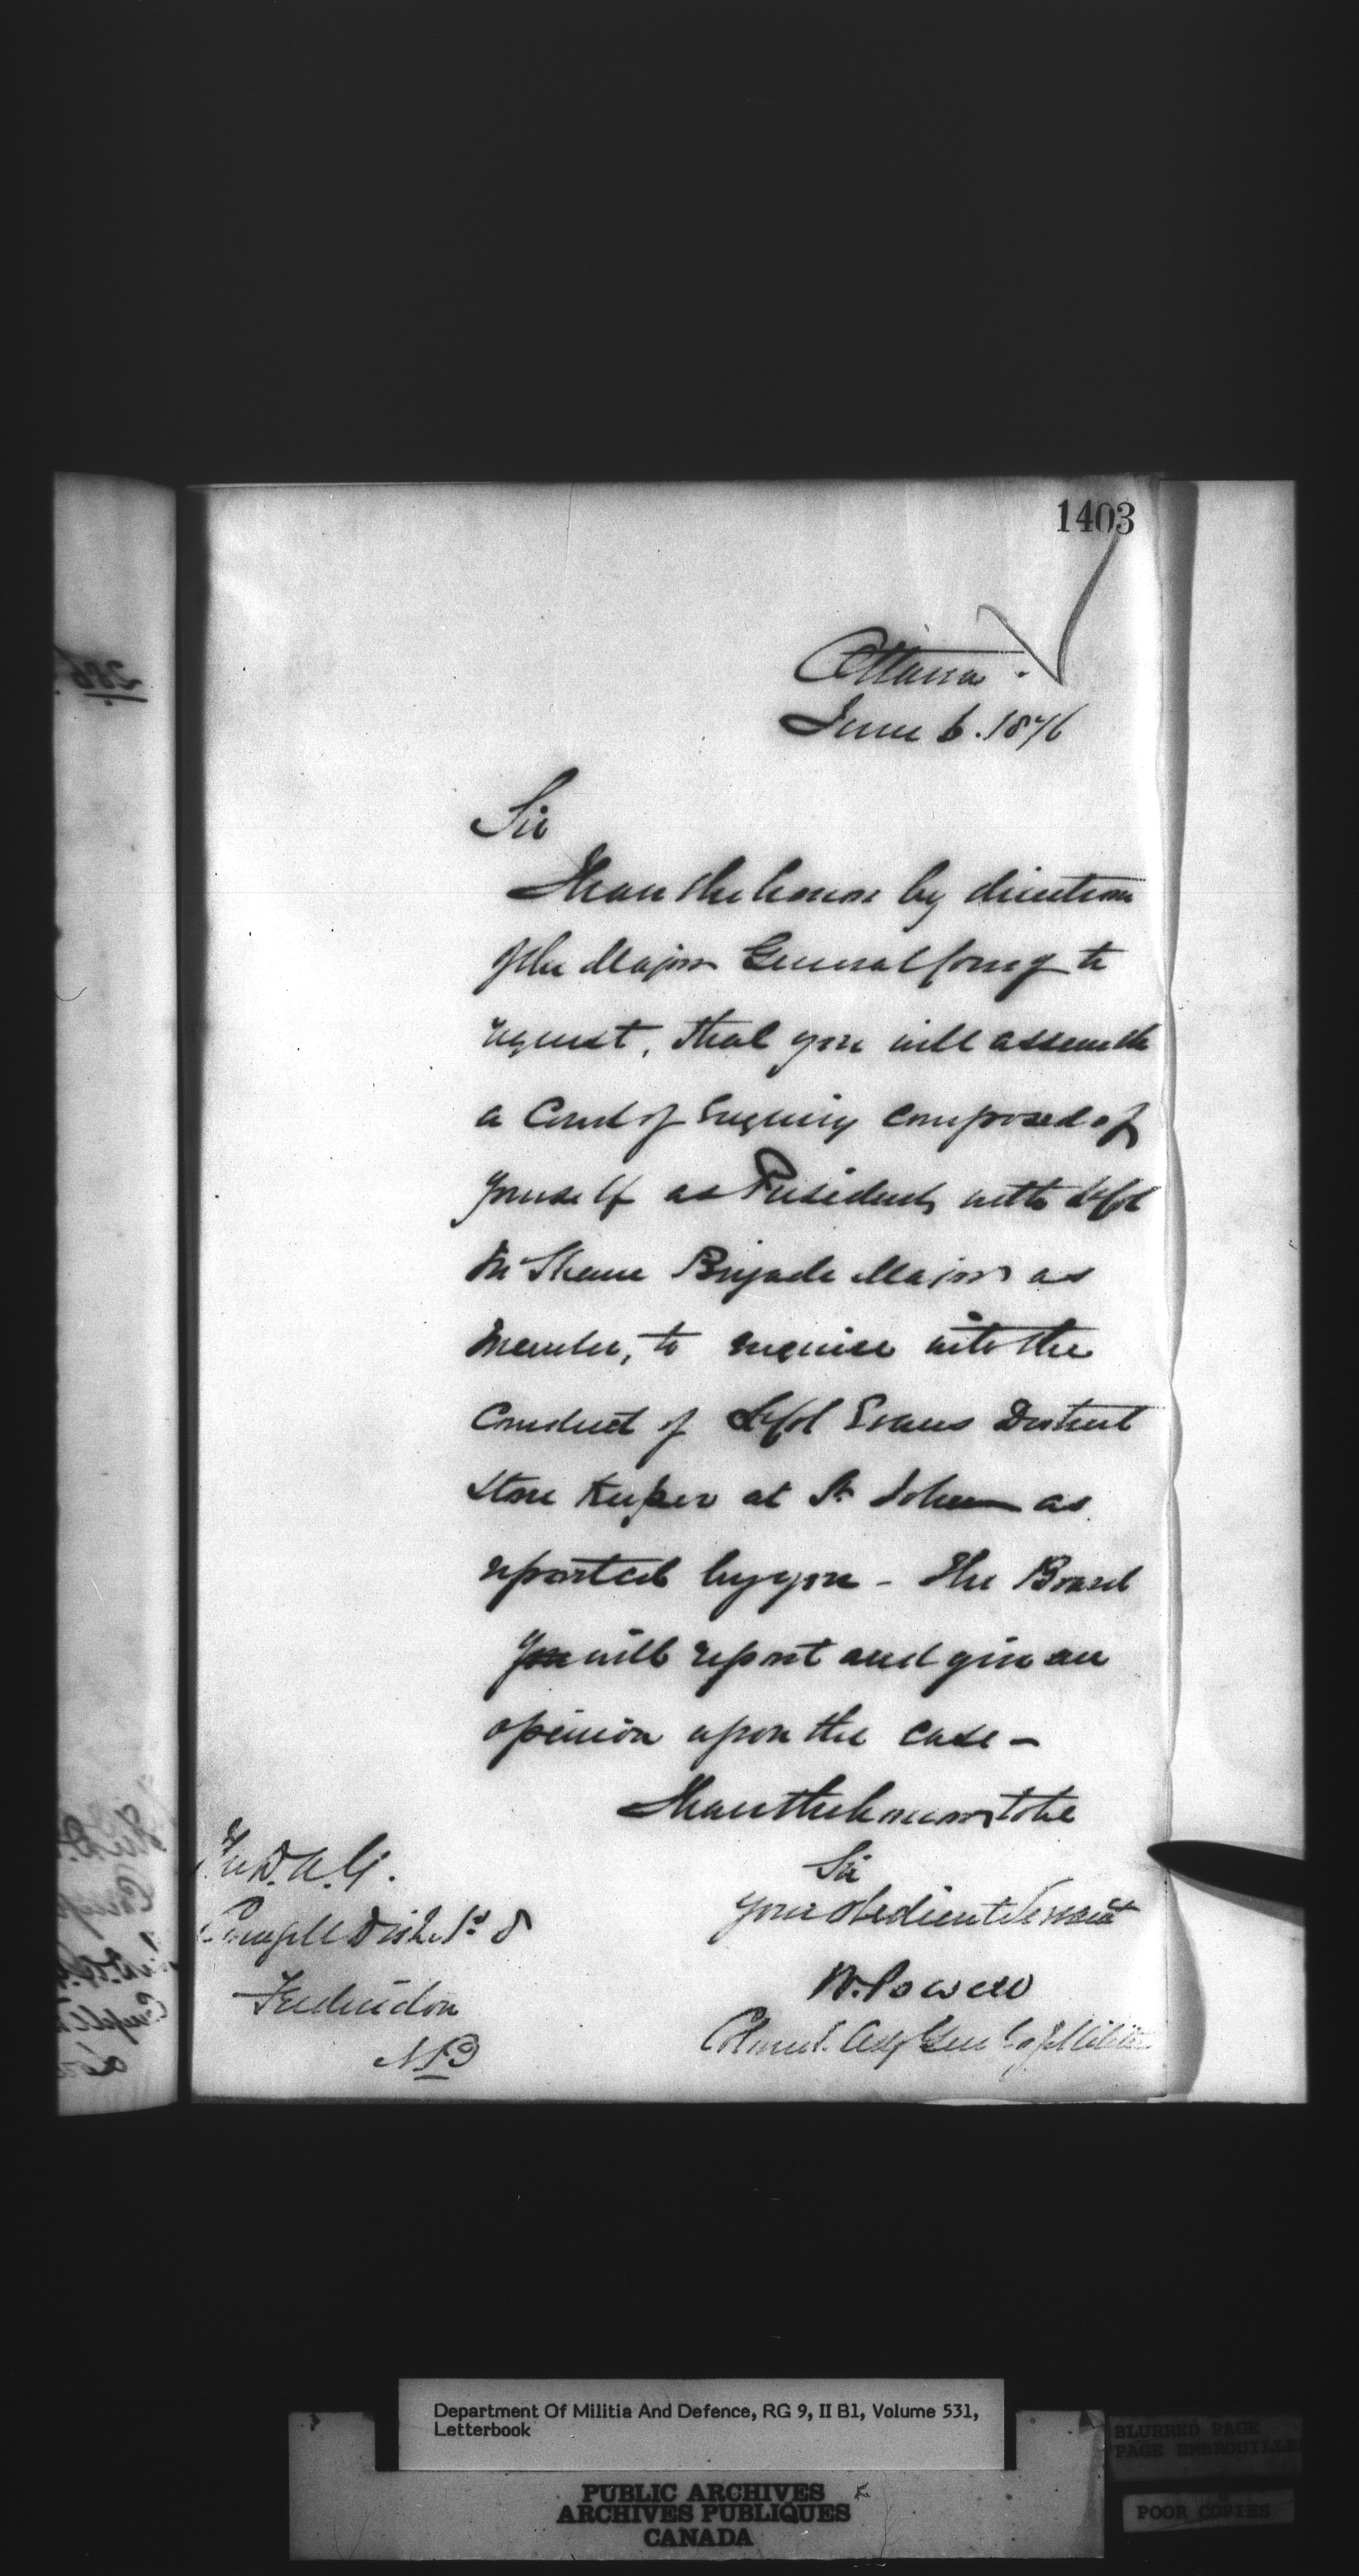 1403
Ottawa.
June 6. 1876
Sir
I have the honor by direction
of the Major General Comg to
request, that you will assemble
a Court of Enquiry composed of
yourself as President, with Lt Col
McShane Brigade Major as
Member, to enquire into the
Conduct of Lt Col Evans District
Store Keeper at St John as
reported by you - The Board
will report and give an
opinion upon the case -
I have the honor to be
Sir
Your obedient Servant
W. Powell
Colonel. Adjt Genl of Militia
The D. A. G.
Comg Mil Dist. No 8
Fredericton
NB
286
Department Of Militia And Defence, RG 9, II B1, Volume 531,
Letterbook
PUBLIC ARCHIVES
ARCHIVES PUBLIQUES
CANADA
BLURRED PAGE
PAGE EMBROUILLE
POOR COPIES